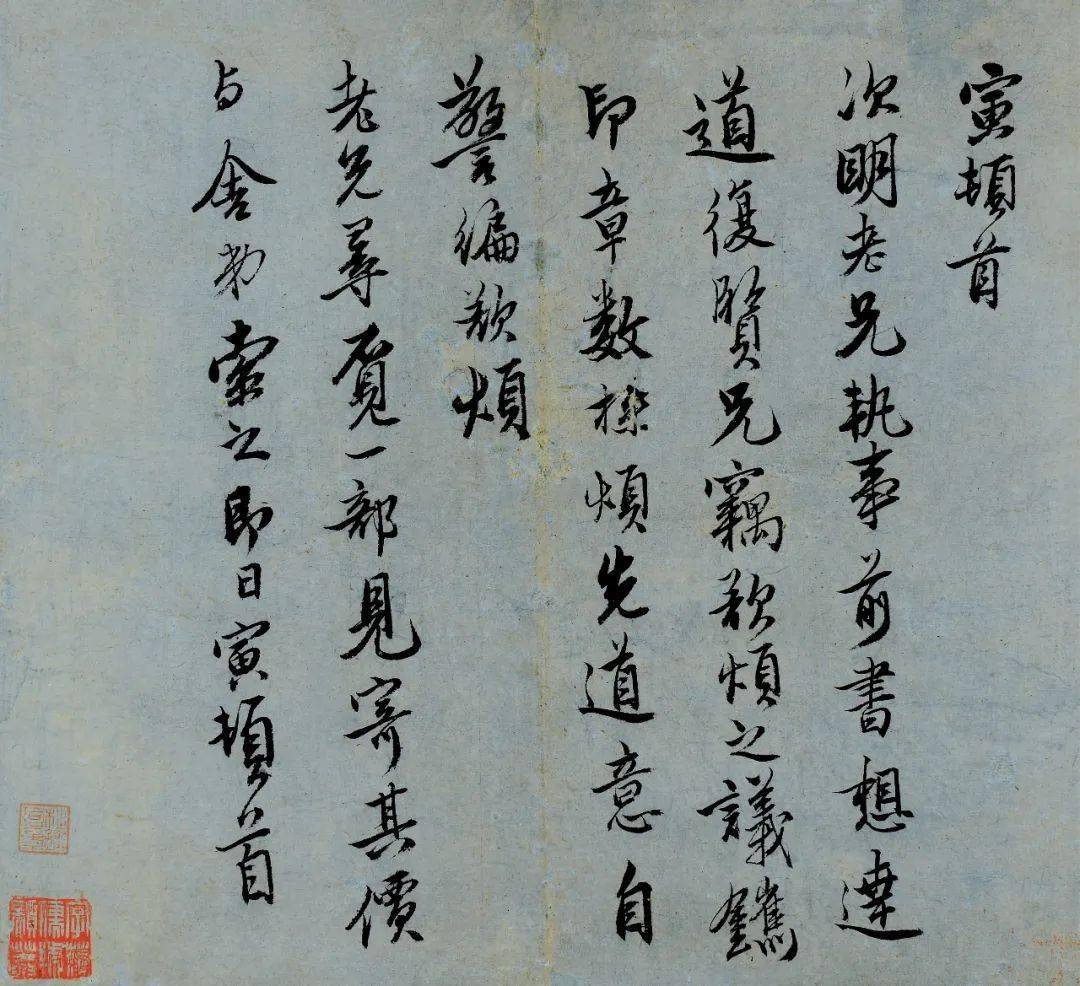 寅頓首
次明老兄執事前書想達
道復賢兄竊欲煩之議鐫
印章數樣煩先道意自
警編欲煩
老兄尋覓一部見寄其價
与舍弟索之即日寅頓首